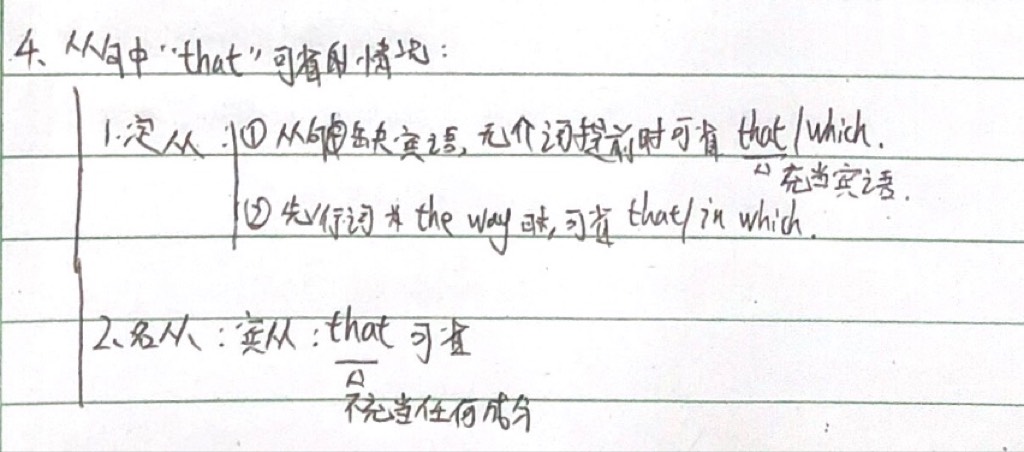 4、从句中“that”可省的情况:
1.定从: ①从句中缺宾语,无介词提前时可省 that/which.
充当宾语.
②先行词为 the way 时,可省 that/in which.
2、名从、:宾从:that 可省
不充当任何成分